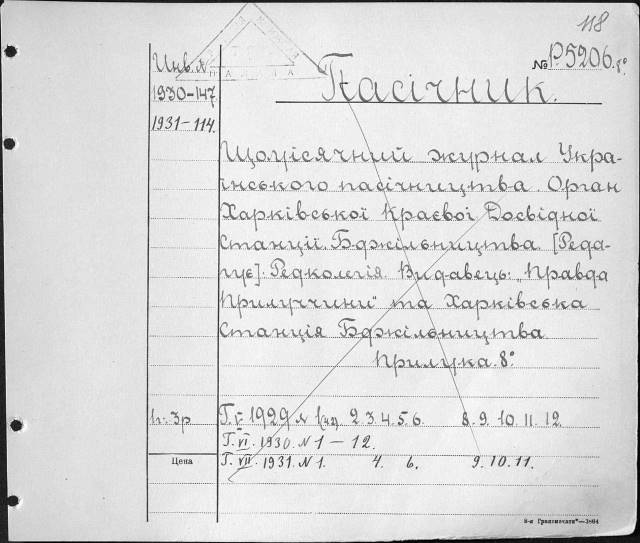 118
№ P.5206. 8°
Инв. №
1930-147
1931-114.
Пасічник.
Щомісячний журнал Украї-
їнського пасічництва. Орган
Харківської Краєвої Досвідної
Станції Бджільництва. [Реда-
гує]. Редколегія. Видавець: „Правда
Прилуччини" та Харківська
Станція Бджільництва.
Прилука. 8°.
Г. V. 1929 № 1(42) 2. 3. 4. 5. 6. 8. 9. 10. 11. 12.
Г. VI. 1930. № 1 – 12.
Цена
Г. VII. 1931. № 1. 4. 6. 9. 10. 11.
8-я Гравпечать"—3864